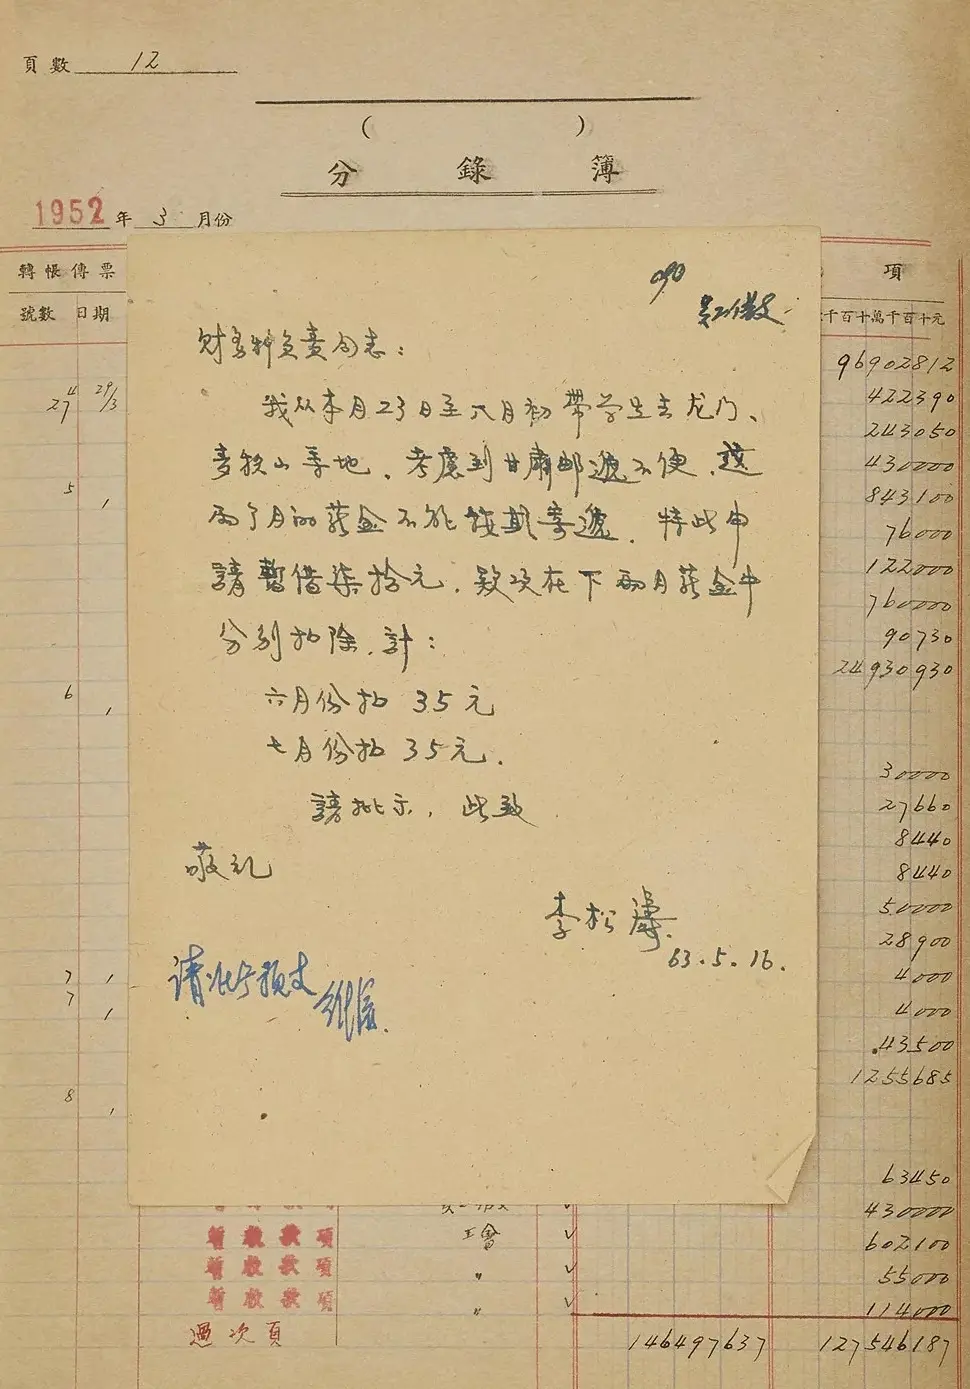 頁數 12
( )
分錄簿
1952年 3 月份
轉帳傳票 項
號數 日期 千百十萬千百十元
090
财务科负责同志：
我从本月23日至六月初带学生去龙门、
麦积山等地，考虑到甘肃邮递不便，这
两个月的薪金不能按期寄递，特此申
請暫借柒拾元，款项在下兩月薪金中
分别扣除，計：
六月份扣 35元
七月份扣 35元．
請批示，此致
敬礼
李松濤．
63.5.16.
请准予预支
96902812
4 29/3
27 422390
243050
430000
5 843100
76000
122000
760000
90730
24930930
6
30000
27660
8440
8440
50000
28900
7 4000
7 4000
43500
1255685
8
63450
430000
暫收款項 工會 ✓ 602100
暫收款項 〃 ✓ 55000
暫收款項 〃 ✓ 114000
過次頁 146497637 127546187